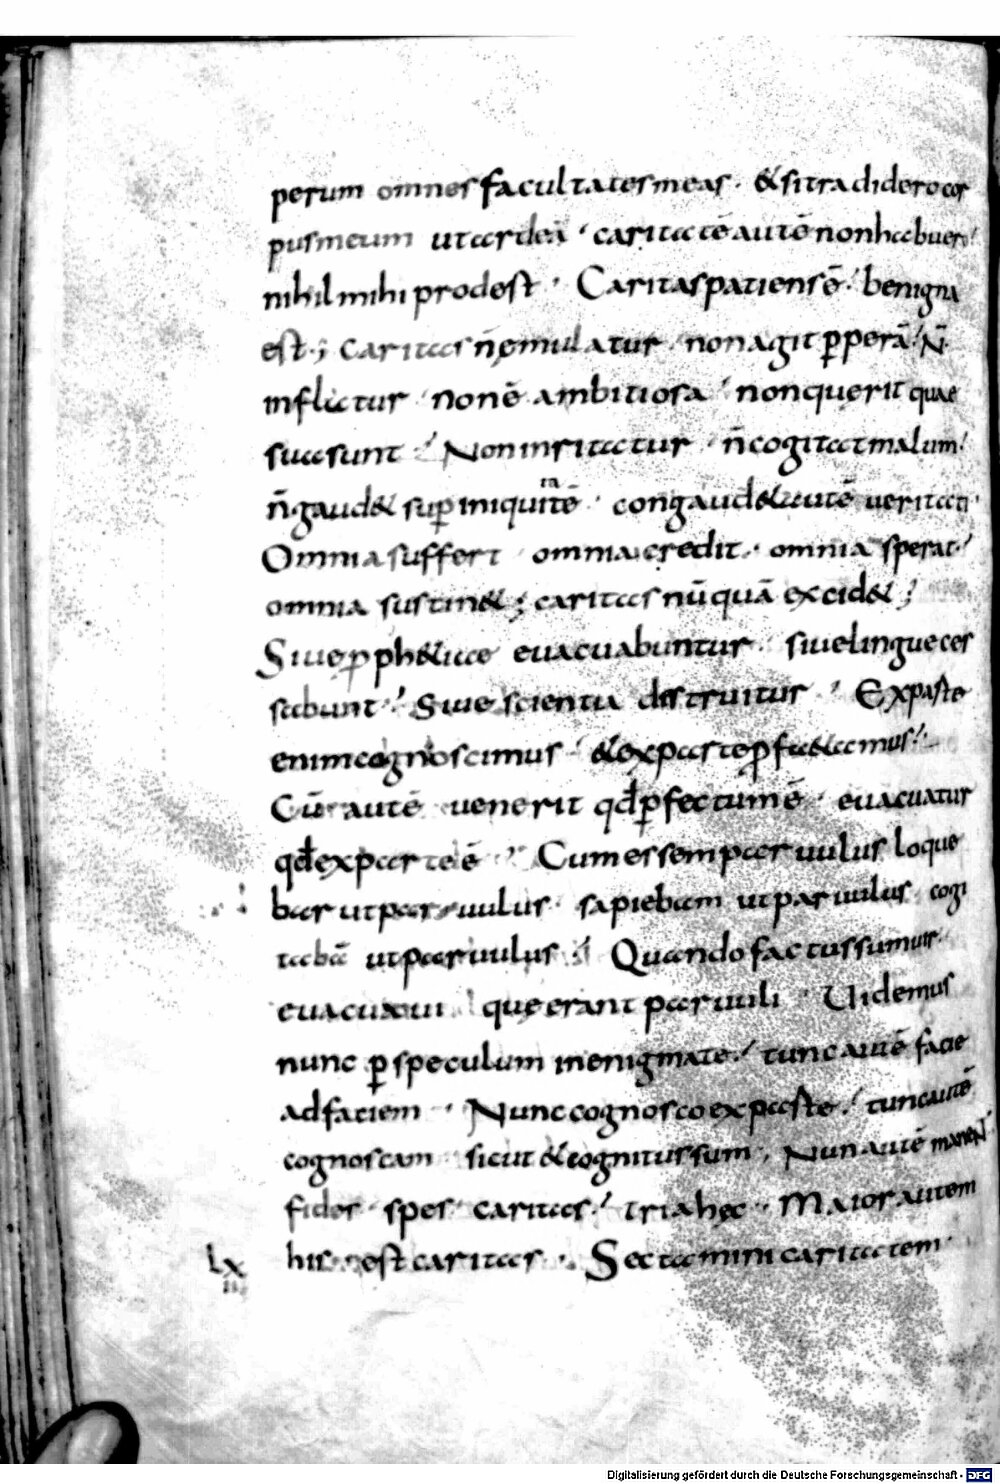 perum omnes facultates meas · & si tradidero cor
pus meum ut ardeā · caritatē autē non habuero
nihil mihi prodest · Caritas patiens ē · benigna
est ; caritas n̄ ęmulatur · non agit ꝑperā · N̄
inflatur · non ē ambitiosa · non querit quae
sua sunt · Non inritatur · n̄ cogitat malum ·
n̄ gaud& suꝑ iniquitatē · congaud& autē veritati
Omnia suffert · omnia credit · omnia sperat ·
omnia sustin& ; caritas nūquā excid& ;
Siue ꝓph&iae euacuabuntur · siue lingue ces
sabunt · Siue scientia destruitur · Ex paste
enim cognoscimus · & ex parte ꝓf&amus ·
Cū autē uenerit qđ ꝑfectum ē · euacuatur
qđ ex parte ē · Cum essem paruulus loque
bar ut paruulus · sapiebam ut paruulus cogi
tabā ut paruulus · Quando factus sum uir ·
euacuaui quę erant paruuli · Uidemus
nunc ꝑ speculum in enigmate · tunc autē facie
ad faciem · Nunc cognosco ex paste · tunc autē
cognoscam sicut & cognitus sum · Nun autē manen̄
fides · spes · caritas · tria hęc · Maior autem
his est caritas · Sectamini caritatem ·
lx
ii
Digitalisierung gefördert durch die Deutsche Forschungsgemeinschaft - DFG